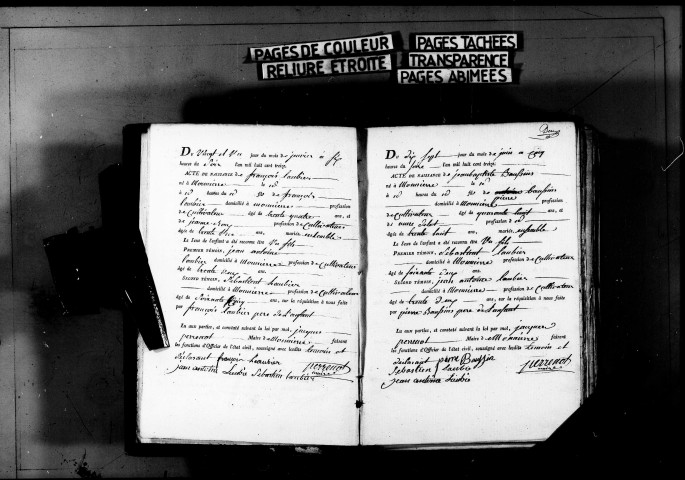 PAGES DE COULEUR
RELIURE ETROITE
PAGES TACHÉES
TRANSPARENCE
PAGES ABIMÉES
Du Vingt et Un jour du mois de janvier à six
heures du Soir l'an mil huit cent treize
ACTE DE NAISSANCE de françois Laubier
né à Mounière le id
à id heures du id fils de françois
laubier domicilié à mounière profession
de Cultivateur âgé de trente quatre ans, et
de jeanne profession de Cultivateur
âgée de trente Un ans, mariés ensemble
Le Sexe de l'enfant a été reconnu être Un fils
PREMIER TÉMOIN, jean antoine
laubier domicilié à Mounière profession de Cultivateur
âgé de trente cinq ans.
SECOND TÉMOIN, Sébastient laubier
domicilié à Mounière profession de Cultivateur
âgé de Soixante ans, sur la réquisition à nous faite
par françois Laubier père de l'enfant
Et aux parties, et constaté suivant la loi par moi, jacques
perrenot Maire de Mounière faisant
les fonctions d'Officier de l'état civil, soussigné avec lesdits temoins et
déclarant françois Laubier perrenot
jean antoine Laubie Sébastien laubier maire
Du dix Sept jour du mois de juin à cinq
heures du Soire l'an mil huit cent treize
ACTE DE NAISSANCE de jeanbaptiste Baussins
né à Mounière le id
à id heures du id fils de pierre baussins
domicilié à Mounière profession
de Cultivateur âgé de quarante huit ans, et
de profession de id
âgée de trente huit ans, mariés ensemble
Le Sexe de l'enfant a été reconnu être Un fils
PREMIER TÉMOIN, Sébastient laubier
domicilié à Mounière profession de Cultivateur
âgé de Soixante cinq ans.
SECOND TÉMOIN, jean antoine laubier
domicilié à Mounière profession de Cultivateur
âgé de trente cinq ans, sur la réquisition à nous faite
par pierre Baussins père de l'enfant
Et aux parties, et constaté suivant la loi par moi, jacques
perrenot Maire de Mounière faisant
les fonctions d'Officier de l'état civil, soussigné avec lesdits temoins et
déclarant pierre Baussin
Sébastien laubie perrenot
jean antoine Laubie maire